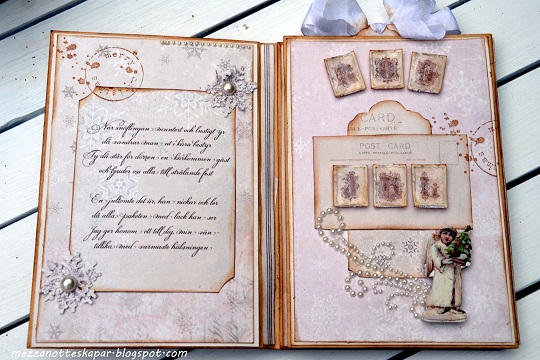 När snöflingan muntert och lustigt yr
då vandrar man ut i kära bestyr
Ty då står för dörren en kärkommen gäst
och bjuder oss alla till strålande fest
En jultomte det är, han nickar och ler
då alla paketen med lack han ser
Jag ger honom ett till dig, min vän
tillika med varmaste hälsningen
CARD
POST CARD
mezzanotteskapar.blogspot.com